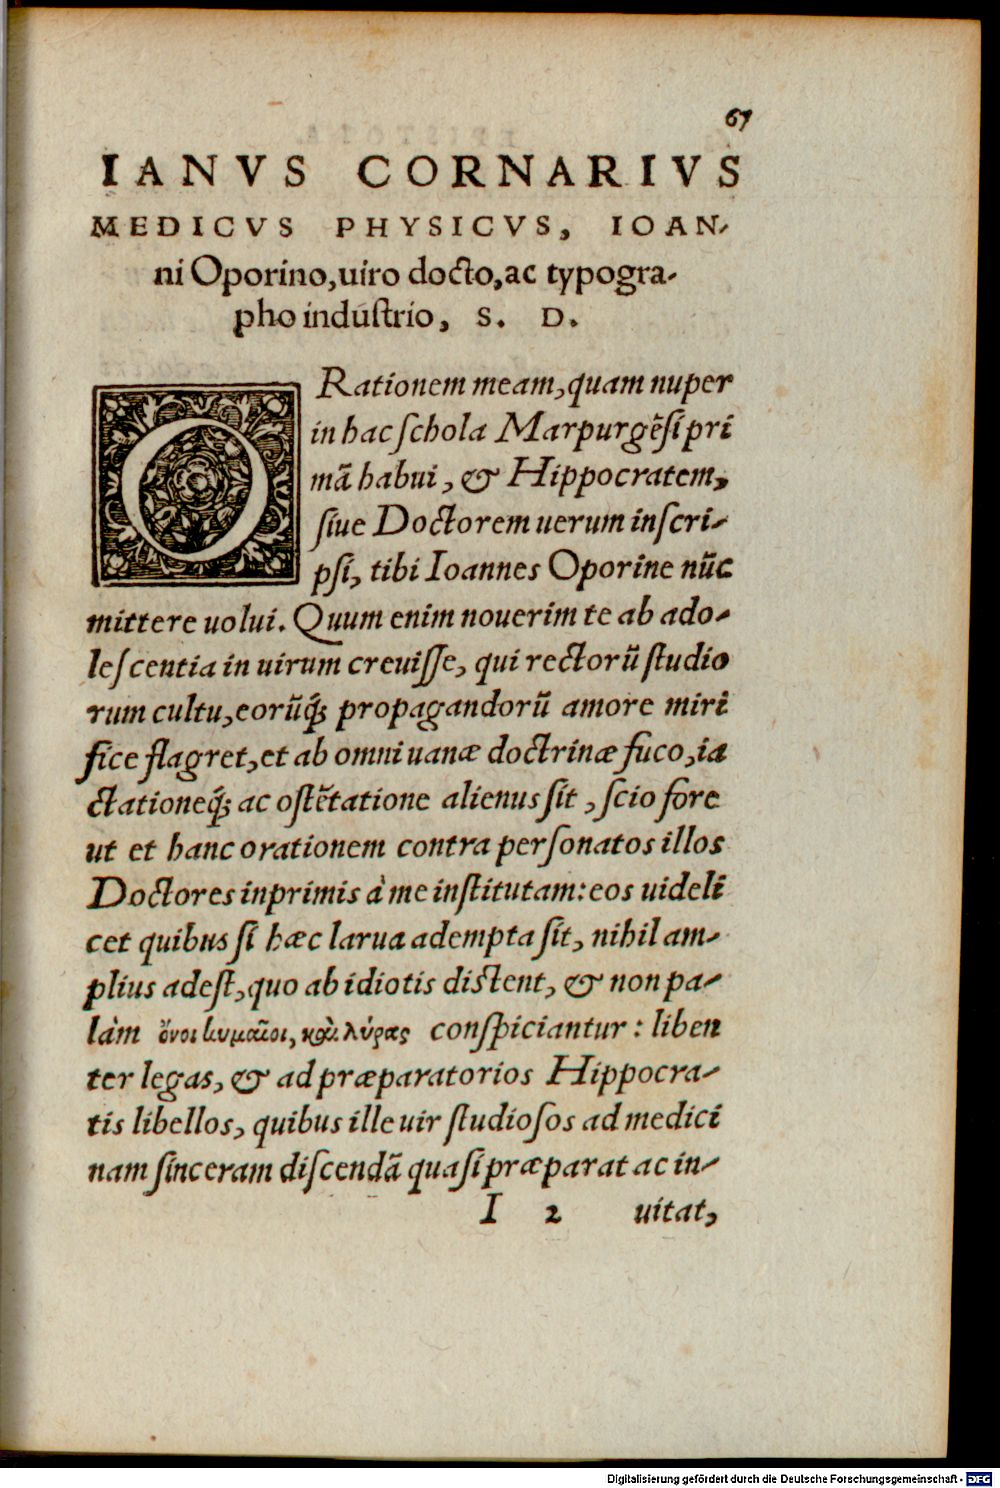 67
IANVS CORNARIVS
MEDICVS PHYSICVS, IOAN-
ni Oporino, uiro docto, ac typogra-
pho industrio, S. D.
ORationem meam, quam nuper
in hac schola Marpurgẽsi pri
mã habui, & Hippocratem,
siue Doctorem uerum inscri-
psi, tibi Ioannes Oporine nũc
mittere uolui. Quum enim nouerim te ab ado-
lescentia in uirum creuisse, qui rectorũ studio
rum cultu, eorũq́; propagandorũ amore miri
fice flagret, et ab omni uanæ doctrinæ fuco, ia
ctationeq́; ac ostẽtatione alienus sit, scio fore
ut et hanc orationem contra personatos illos
Doctores inprimis à me institutam: eos uideli
cet quibus si hæc larua adempta sit, nihil am-
plius adest, quo ab idiotis distent, & non pa-
làm ὄνοι κυμαῖοι, καὶ λύρας conspiciantur: liben
ter legas, & ad præparatorios Hippocra-
tis libellos, quibus ille uir studiosos ad medici
nam sinceram discendã quasi præparat ac in-
I 2 uitat,
Digitalisierung gefördert durch die Deutsche Forschungsgemeinschaft - DFG